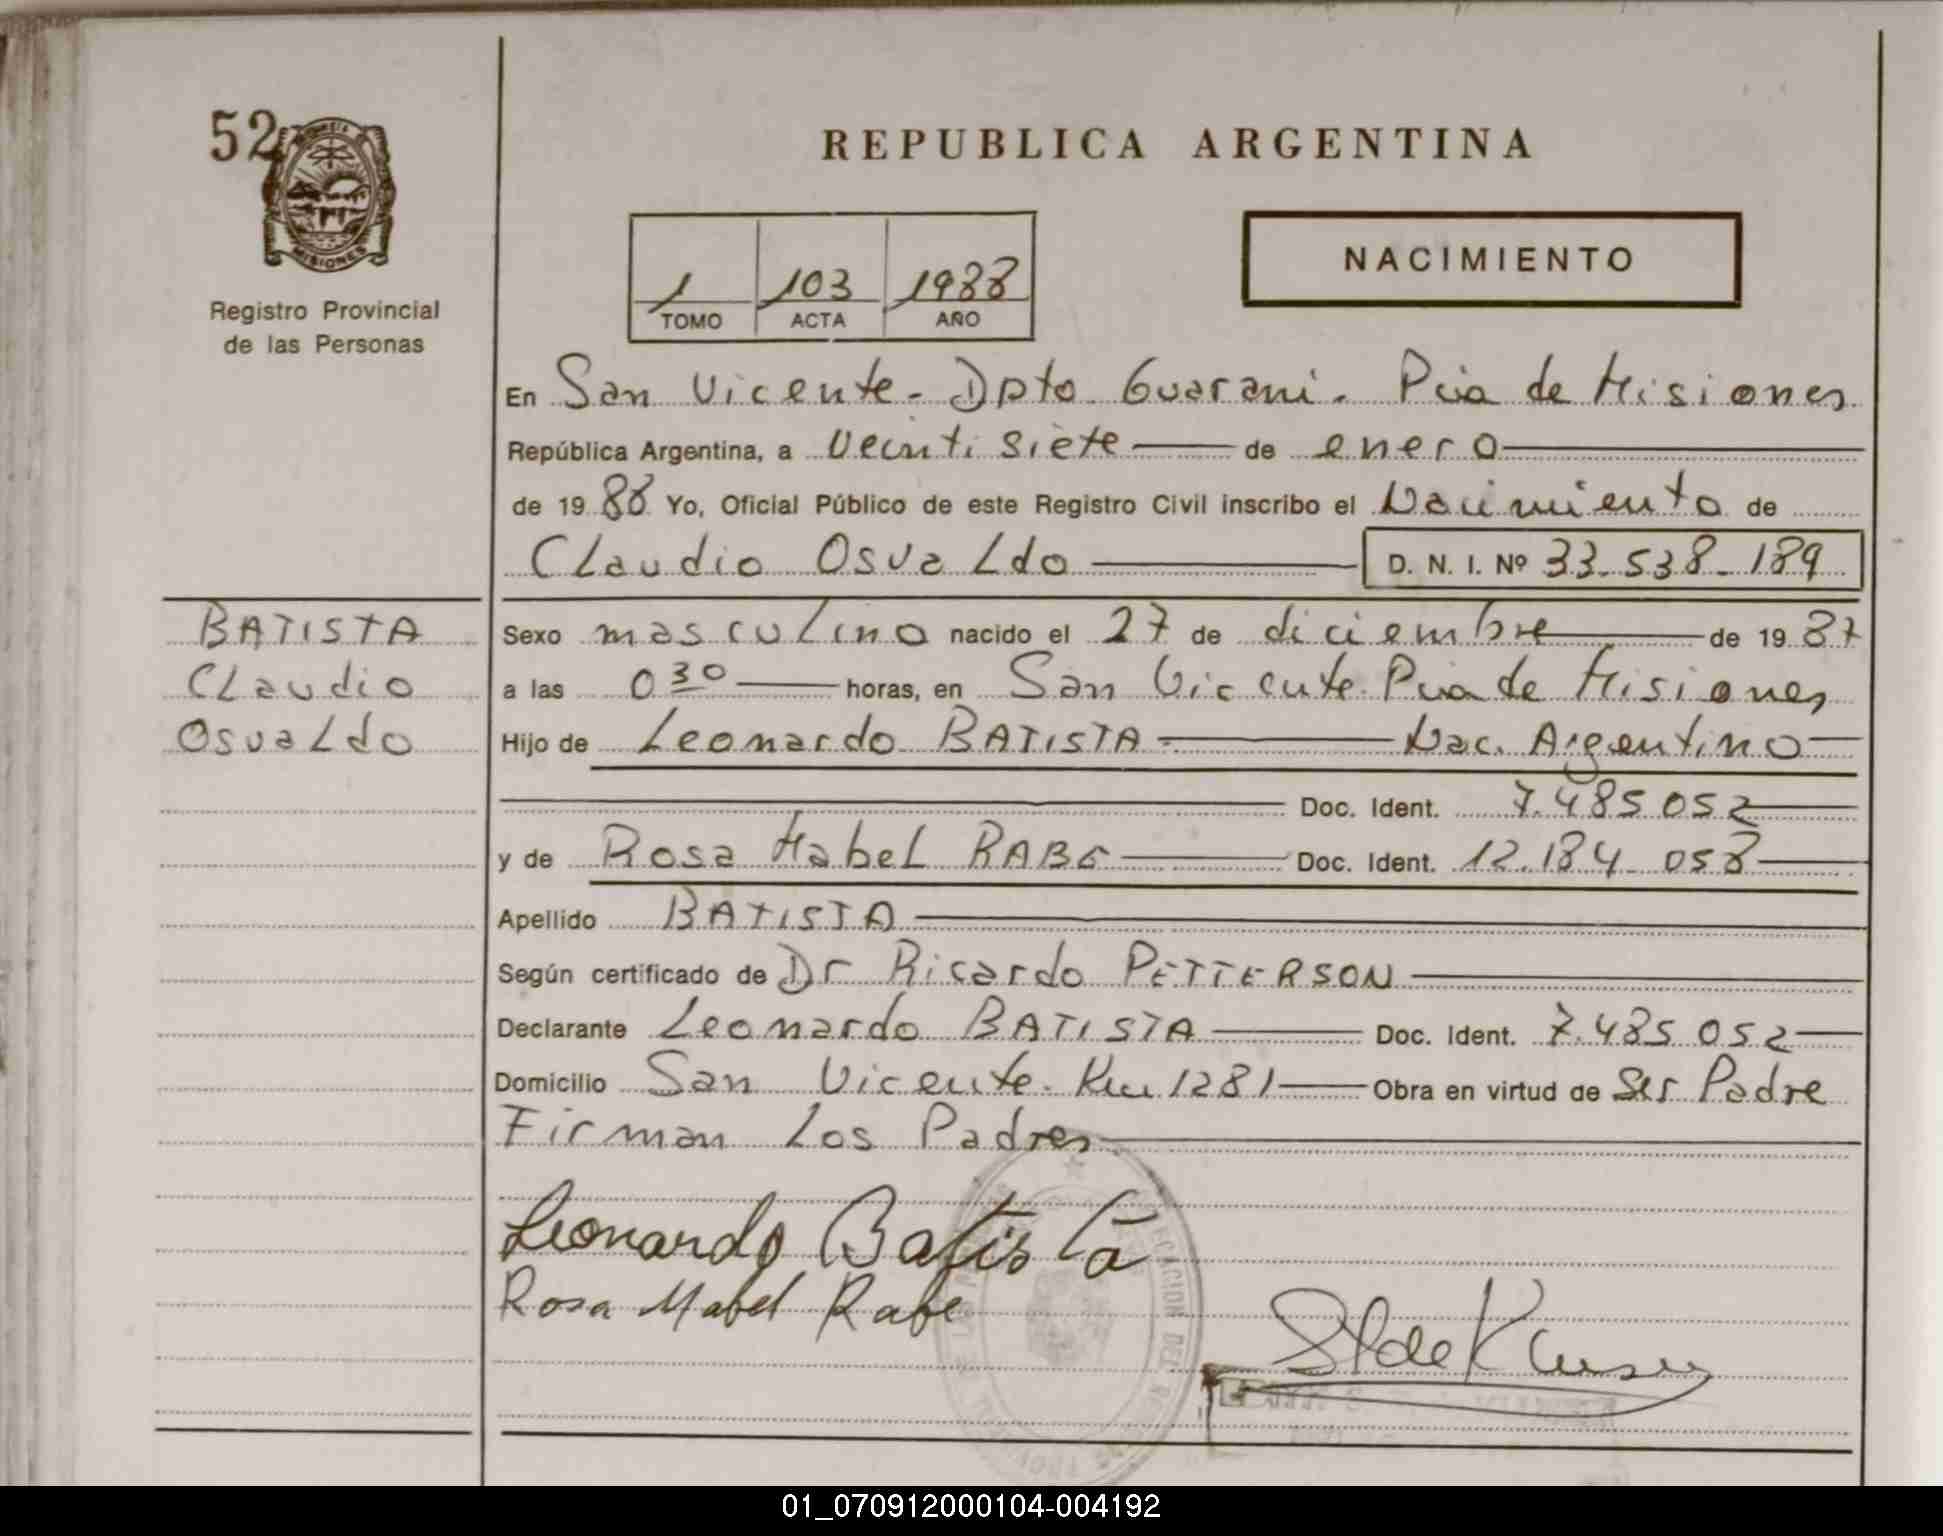 52
MISIONES
Registro Provincial
de las Personas
REPUBLICA ARGENTINA
1 103 1988
TOMO ACTA AÑO
NACIMIENTO
En San Vicente - Dpto Guarani. Pcia de Misiones
República Argentina, a veinti siete de enero
de 19 88 Yo, Oficial Público de este Registro Civil inscribo el Nacimiento de
Claudio Osvaldo D. N. I. Nº 33-538-189
BATISTA
Claudio
Osvaldo
Sexo masculino nacido el 27 de diciembre de 19 87
a las 0 30 horas, en San Vicente Pcia de Misiones
Hijo de Leonardo BATISTA Nac. Argentino
Doc. Ident. 7.485.052
y de Rosa Mabel RABE Doc. Ident. 12.184.058
Apellido BATISTA
Según certificado de Dr Ricardo PETTERSON
Declarante Leonardo BATISTA Doc. Ident. 7.485.052
Domicilio San Vicente - Km 1281 Obra en virtud de Ser Padre
Firman los Padres
Leonardo Batista
Rosa Mabel Rabe
01_070912000104-004192